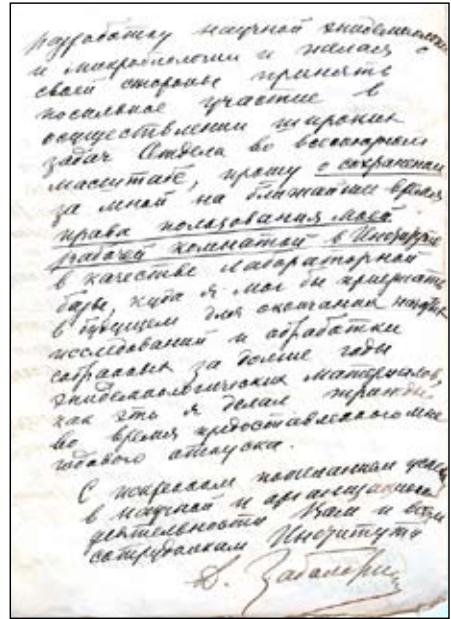 разработку научной эпидемиологии
и микробиологии и желая с
своей стороны принять
посильное участие в
осуществлении широких
задач Отдела во всесоюзном
масштабе, прошу о сохранении
за мной на ближайшее время
права пользования моей
рабочей комнатой в Институте
в качестве лабораторной
базы, куда я мог бы приезжать
в будущем для окончания
исследований и обработки
собранных за долгие годы
эпидемиологических материалов,
как это я делал
во время предоставленного мне
годового отпуска.
С искренним пожеланием успеха
в научной и организационной
деятельности Вам и всем
сотрудникам Института
Д. Заболотный